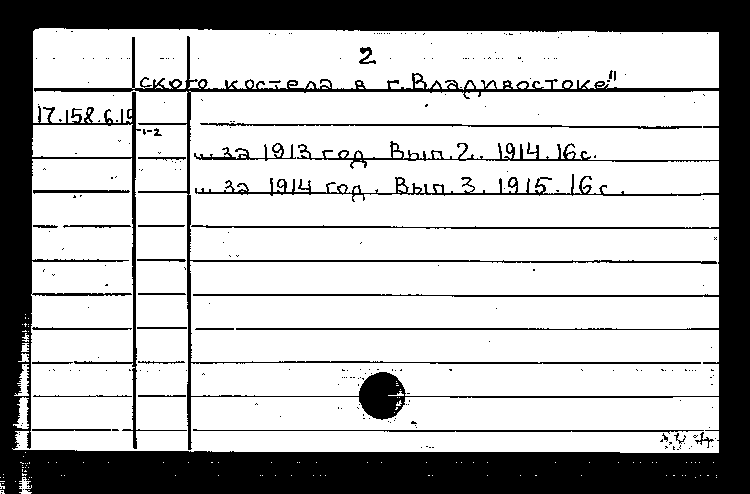 2
ского костела в г. Владивостоке".
17.158.6.15
-1-2
... за 1913 год. Вып. 2. 1914. 16 с.
... за 1914 год. Вып. 3. 1915. 16 с.